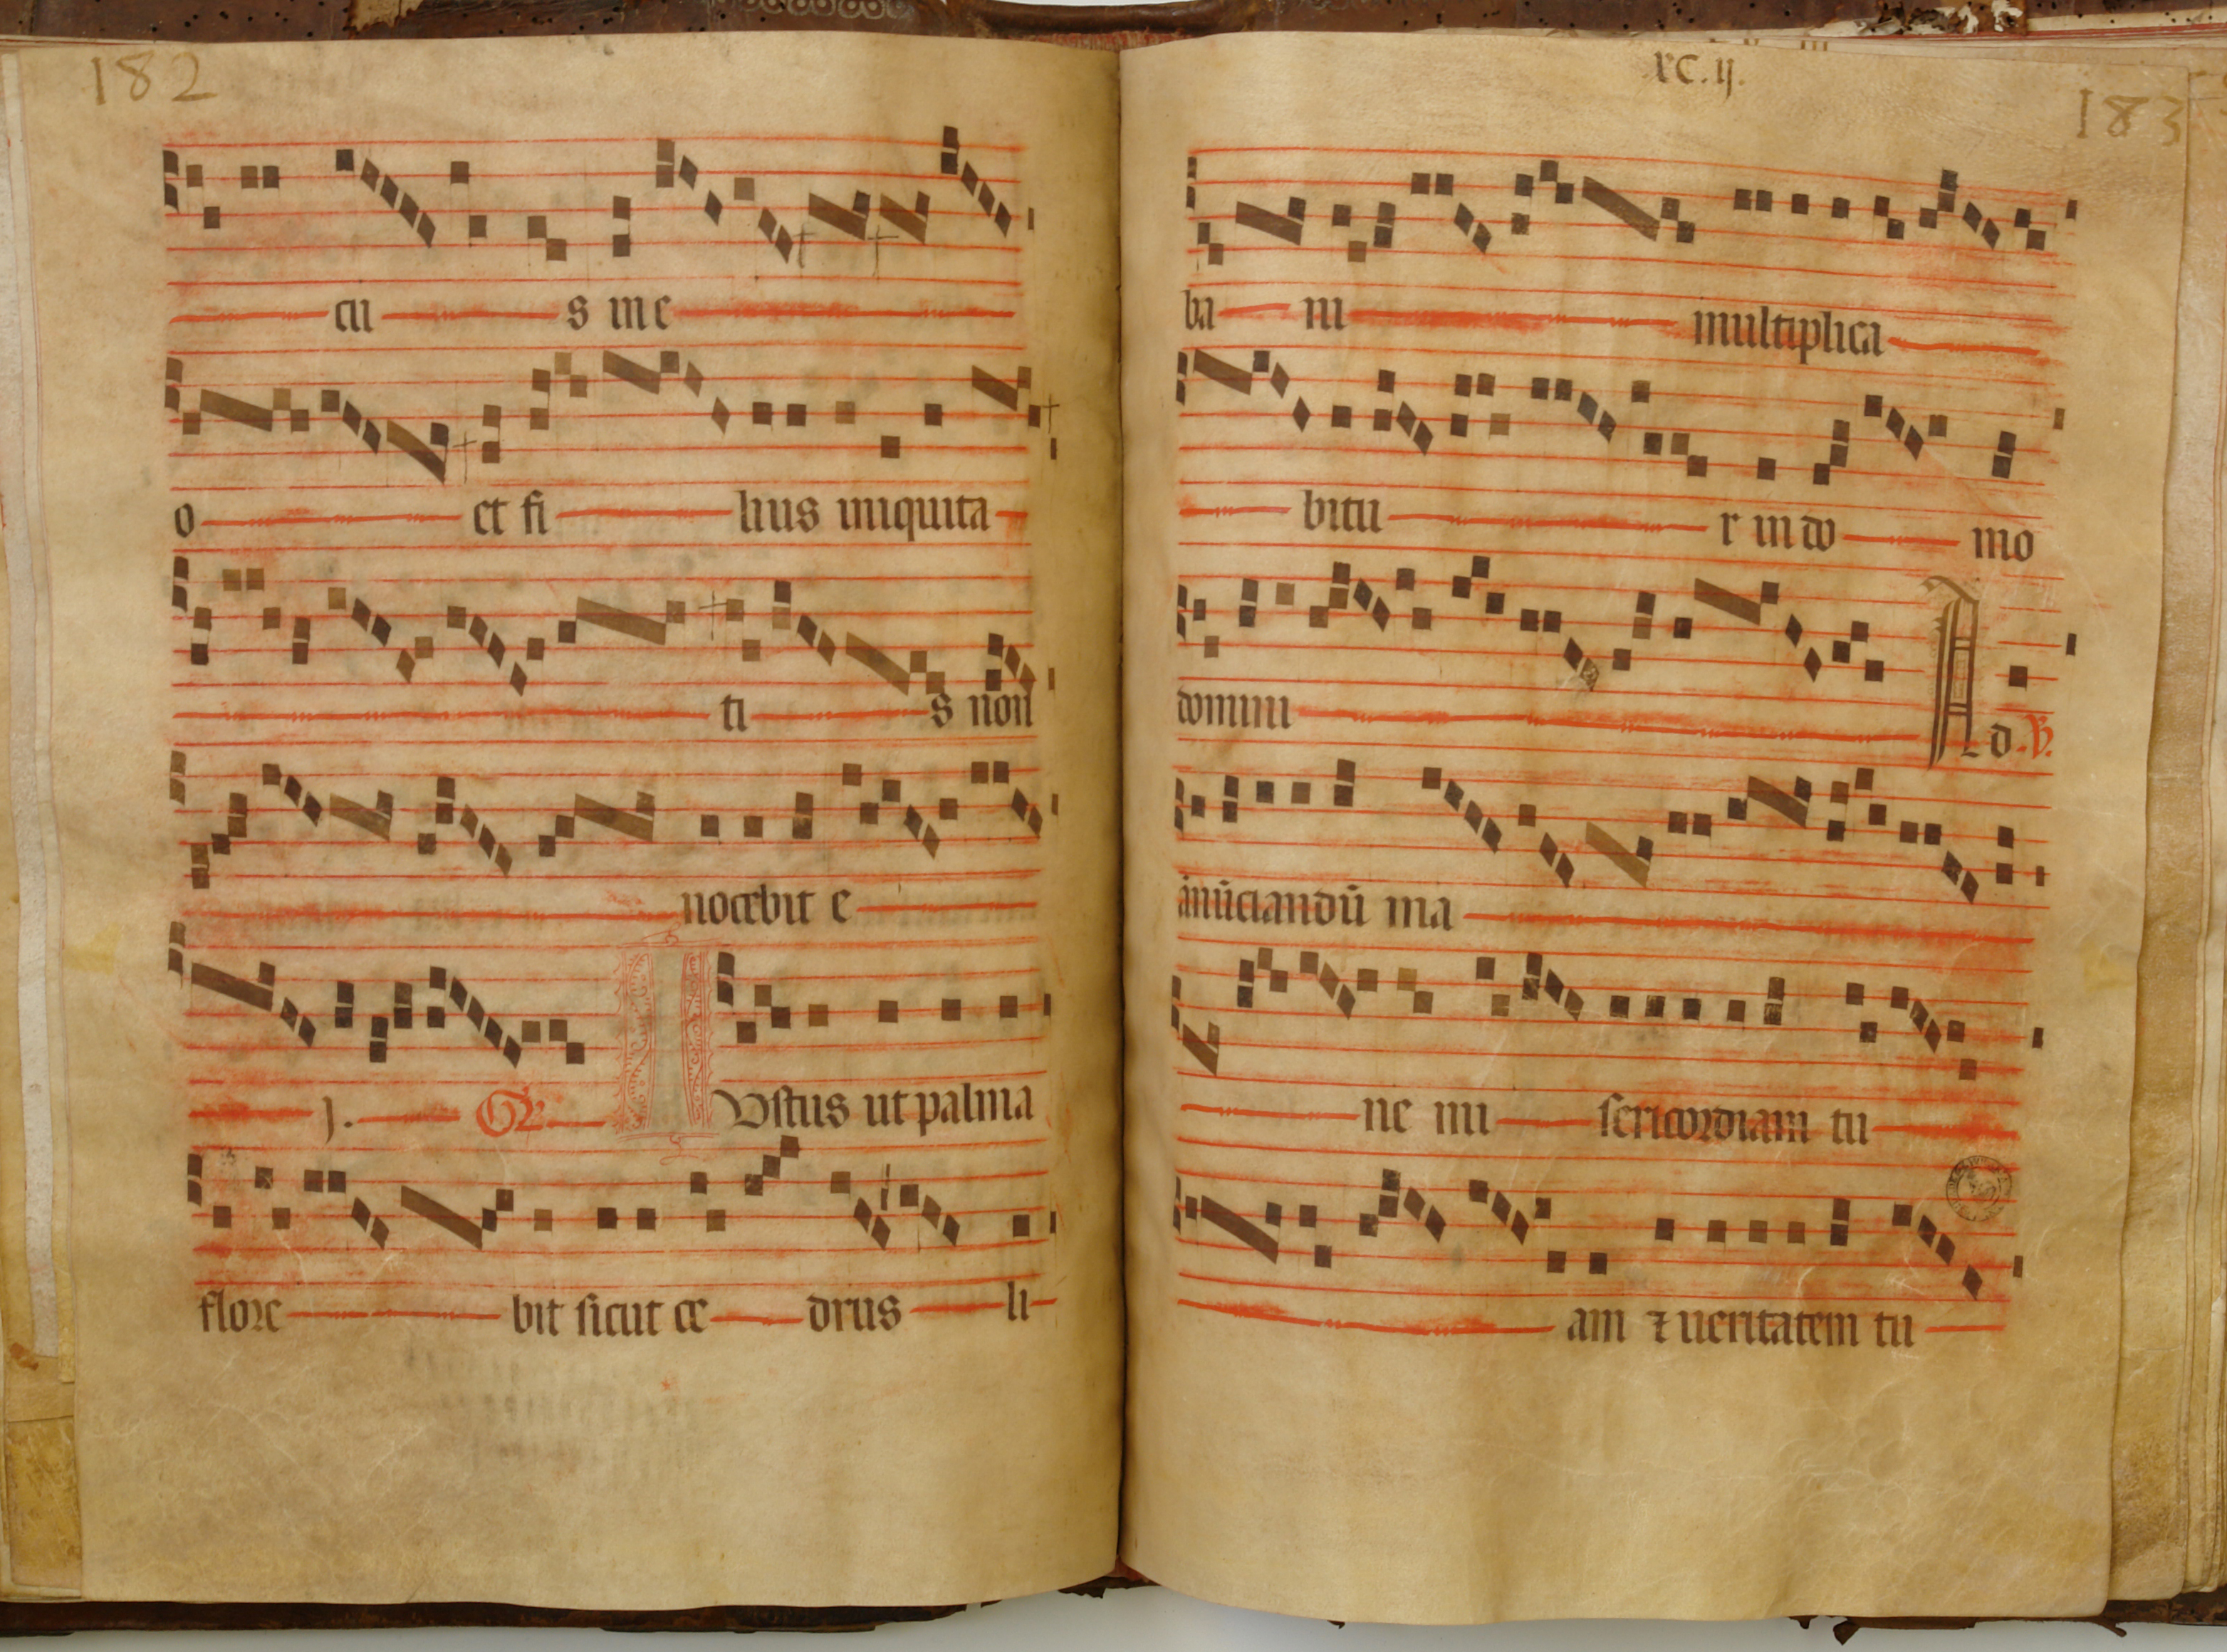 182
cu s me
o et fi lius iniquita
ti s non
nocebit e
j. Gr IUstus ut palma
flore bit sicut ce drus li
xc.ij.
183
ba ni multiplica
bitu r in do mo
domini Ad .V.
ānūciandū ma
ne mi sericordiam tu
am ⁊ ueritatem tu